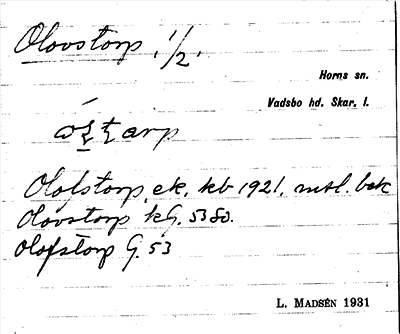 Olovstorp, 1/2.
Horns sn.
Vadsbo hd. Skar. l.
Olofstorp ek. kb 1921. mtl. bak
Olovstorp kG. 53
Olofstorp G. 53
L. MADSÉN 1931